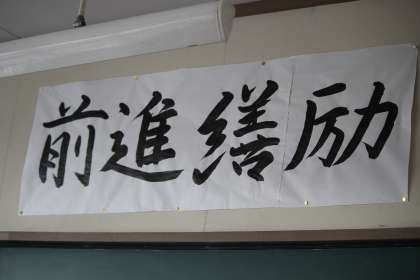 前進繕励